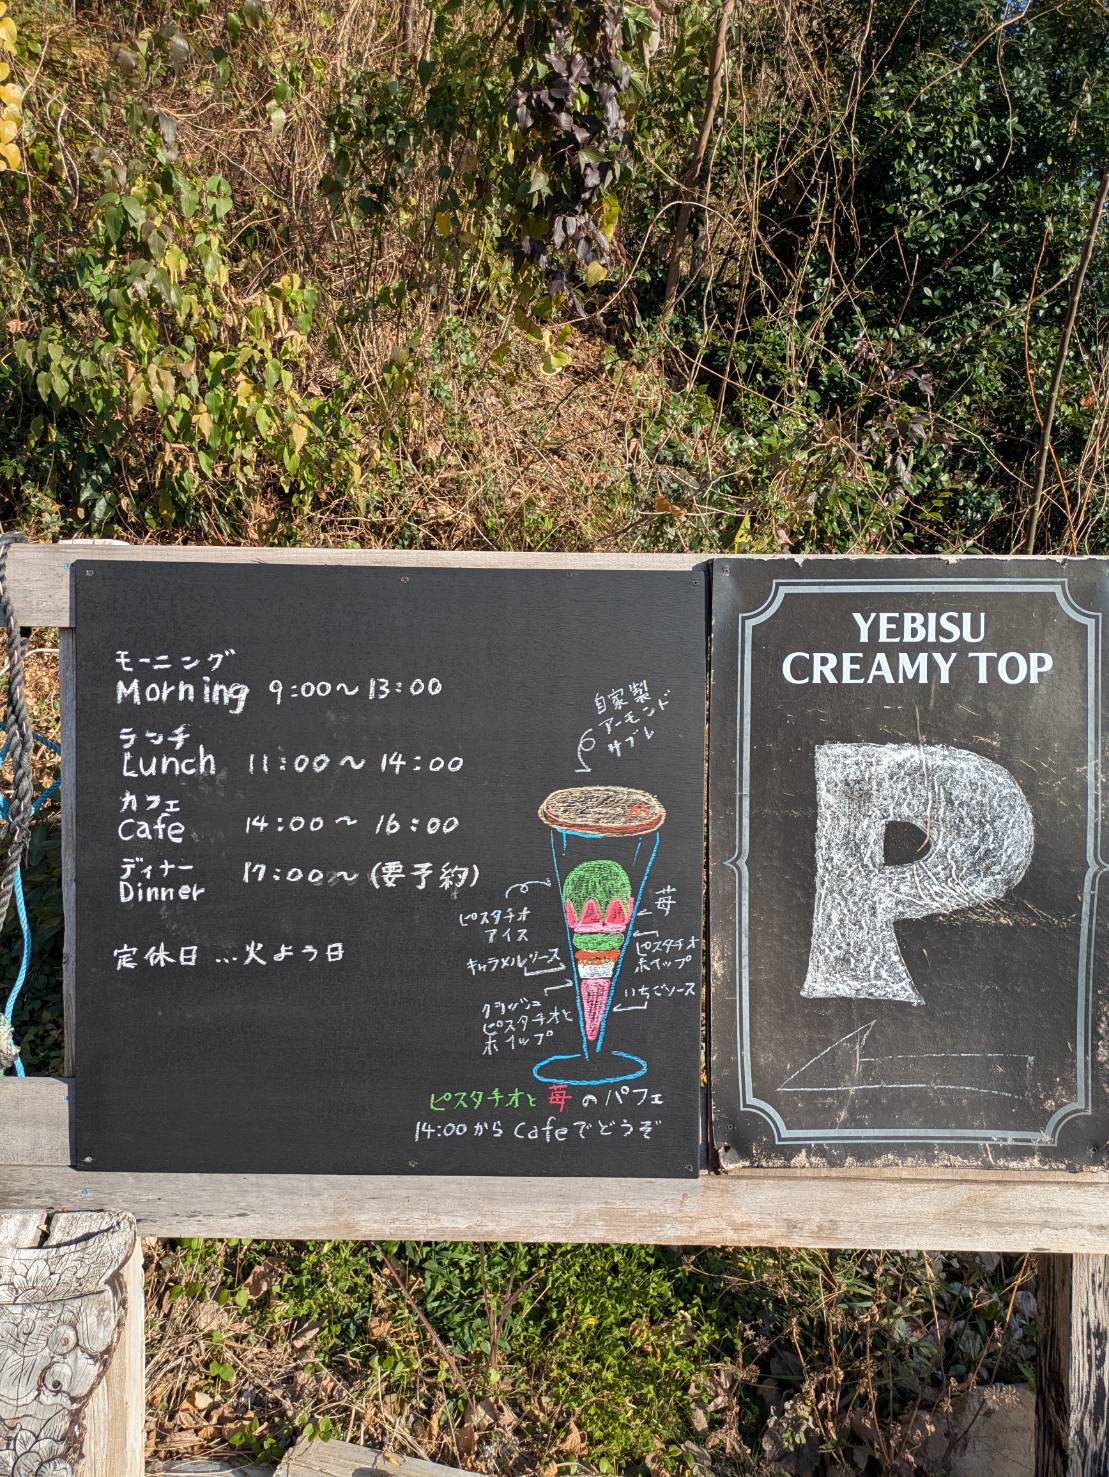 モーニング
Morning 9:00〜13:00
ランチ
Lunch 11:00〜14:00
カフェ
Cafe 14:00〜16:00
ディナー
Dinner 17:00〜(要予約)
定休日…火よう日
自家製
アーモンド
サブレ
ピスタチオ
アイス
苺
ピスタチオ
ホイップ
キャラメルソース
いちごソース
クラッシュ
ピスタチオと
ホイップ
ピスタチオと苺のパフェ
14:00からCafeでどうぞ
YEBISU
CREAMY TOP
P